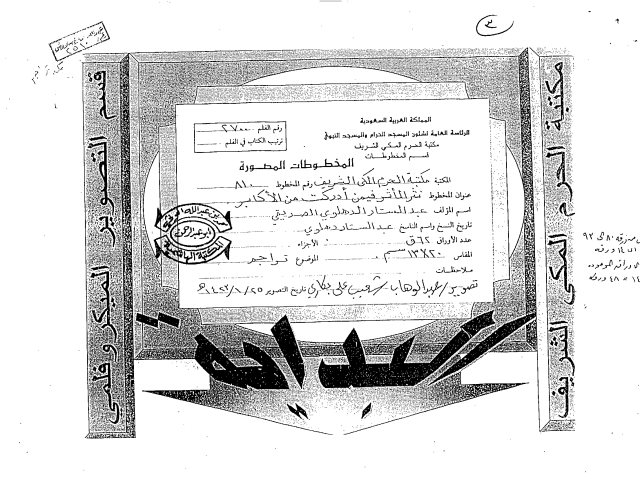 ٣
قسم التصوير الميكروفلمي
مكتبة الحرم المكي الشريف
المملكة العربية السعودية
الرئاسة العامة لشئون المسجد الحرام والمسجد النبوي
مكتبة الحرم المكي الشريف
قسم المخطوطات
رقم الفلم ٢٧٠٠
ترتيب الكتاب في الفلم
المخطوطات المصورة
المكتبة مكتبة الحرم المكي الشريف رقم المخطوط ٨١٠
عنوان المخطوط نثر المآثر فيمن أدركت من الأكابر
اسم المؤلف عبد الستار الدهلوي الصديقي
تاريخ النسخ واسم الناسخ عبد الستار دهلوي
عدد الأوراق ٦٢ ق الأجزاء
المقاس ٢٠×١٣ سم الموضوع تراجم
ملاحظات
تصوير/عبد الوهاب/شعيب علي بكاري تاريخ التصوير ١٤٢٣/١/٢٥هـ
البداية